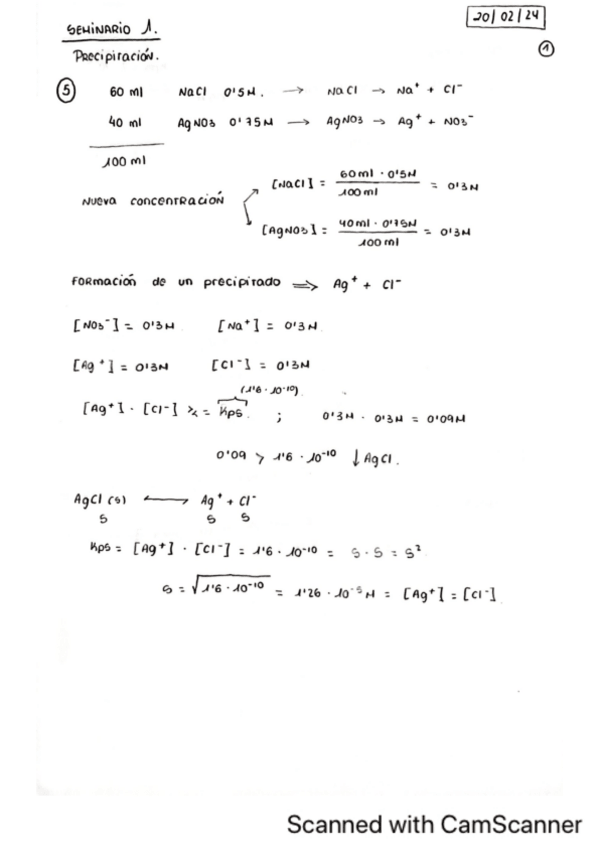 20/02/24
SEMINARIO 1.
Precipitación.
1
5 60 ml NaCl 0'5M. → NaCl → Na⁺ + Cl⁻
40 ml AgNO3 0'75M → AgNO3 → Ag⁺ + NO3⁻
100 ml
Nueva concentración
[NaCl] = 60ml · 0'5M / 100 ml = 0'3M
[AgNO3] = 40ml · 0'75M / 100 ml = 0'3M
Formación de un precipitado ⇒ Ag⁺ + Cl⁻
[NO3⁻] = 0'3M [Na⁺] = 0'3M
[Ag⁺] = 0'3M [Cl⁻] = 0'3M
(1'6 · 10⁻¹⁰)
[Ag⁺] · [Cl⁻] = Kps ; 0'3M · 0'3M = 0'09M
0'09 > 1'6 · 10⁻¹⁰ ↓ AgCl.
AgCl (s) ⟷ Ag⁺ + Cl⁻
S S S
Kps = [Ag⁺] · [Cl⁻] = 1'6 · 10⁻¹⁰ = S · S = S²
S = √1'6 · 10⁻¹⁰ = 1'26 · 10⁻⁵ M = [Ag⁺] = [Cl⁻]
Scanned with CamScanner